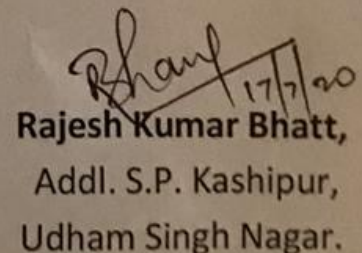 Bhatt
17/7/20
Rajesh Kumar Bhatt,
Addl. S.P. Kashipur,
Udham Singh Nagar.